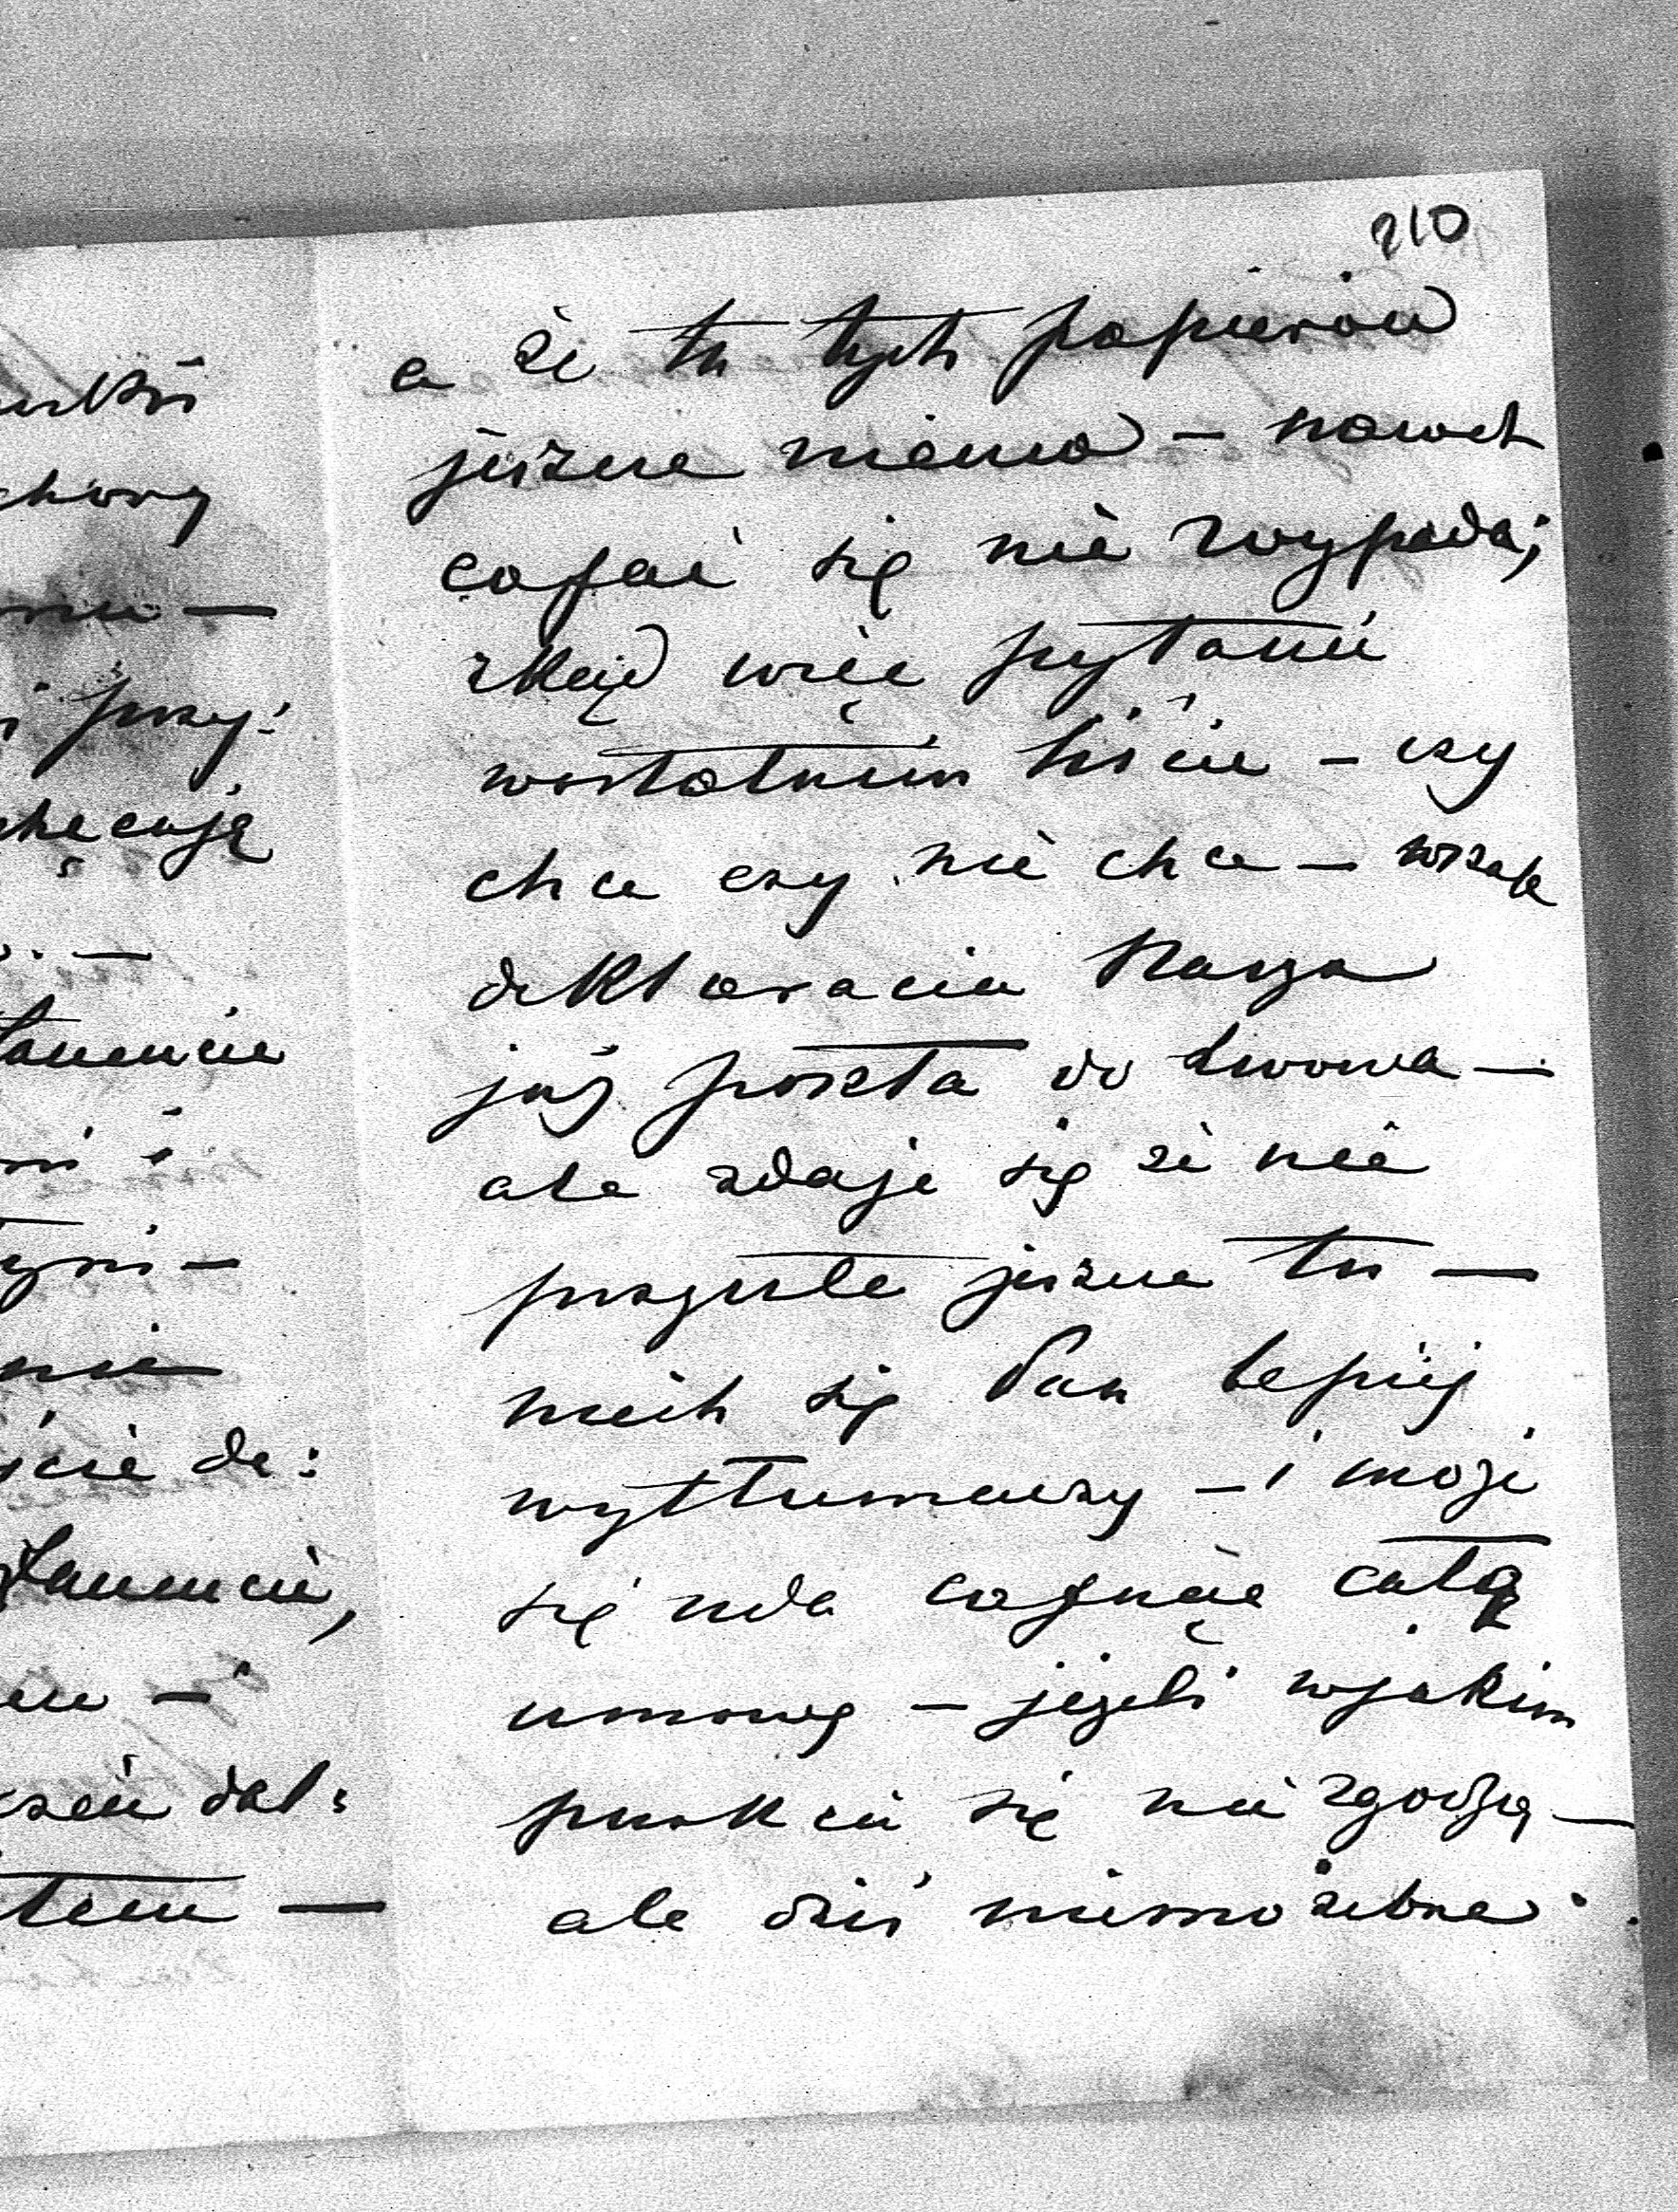 210
a że tu tych papierów
jeszcze niema – nawet
cofać się nie wypada;
zkąd więc pytanie
wostatnim liście – czy
chce czy nie chce – wszak
deklaracia Nasza
już poszła do Lwowa –
ale zdaje się że nie
przyszła jeszcze tu –
niech się Pan lepiéj
wytłumaczy – i może
się uda cofnąć całą
umowę – jeżeli wjakim
punkcie się nie zgodzą –
ale dziś niemożebna
chory
przy:
chęcają
ście da:
dal: